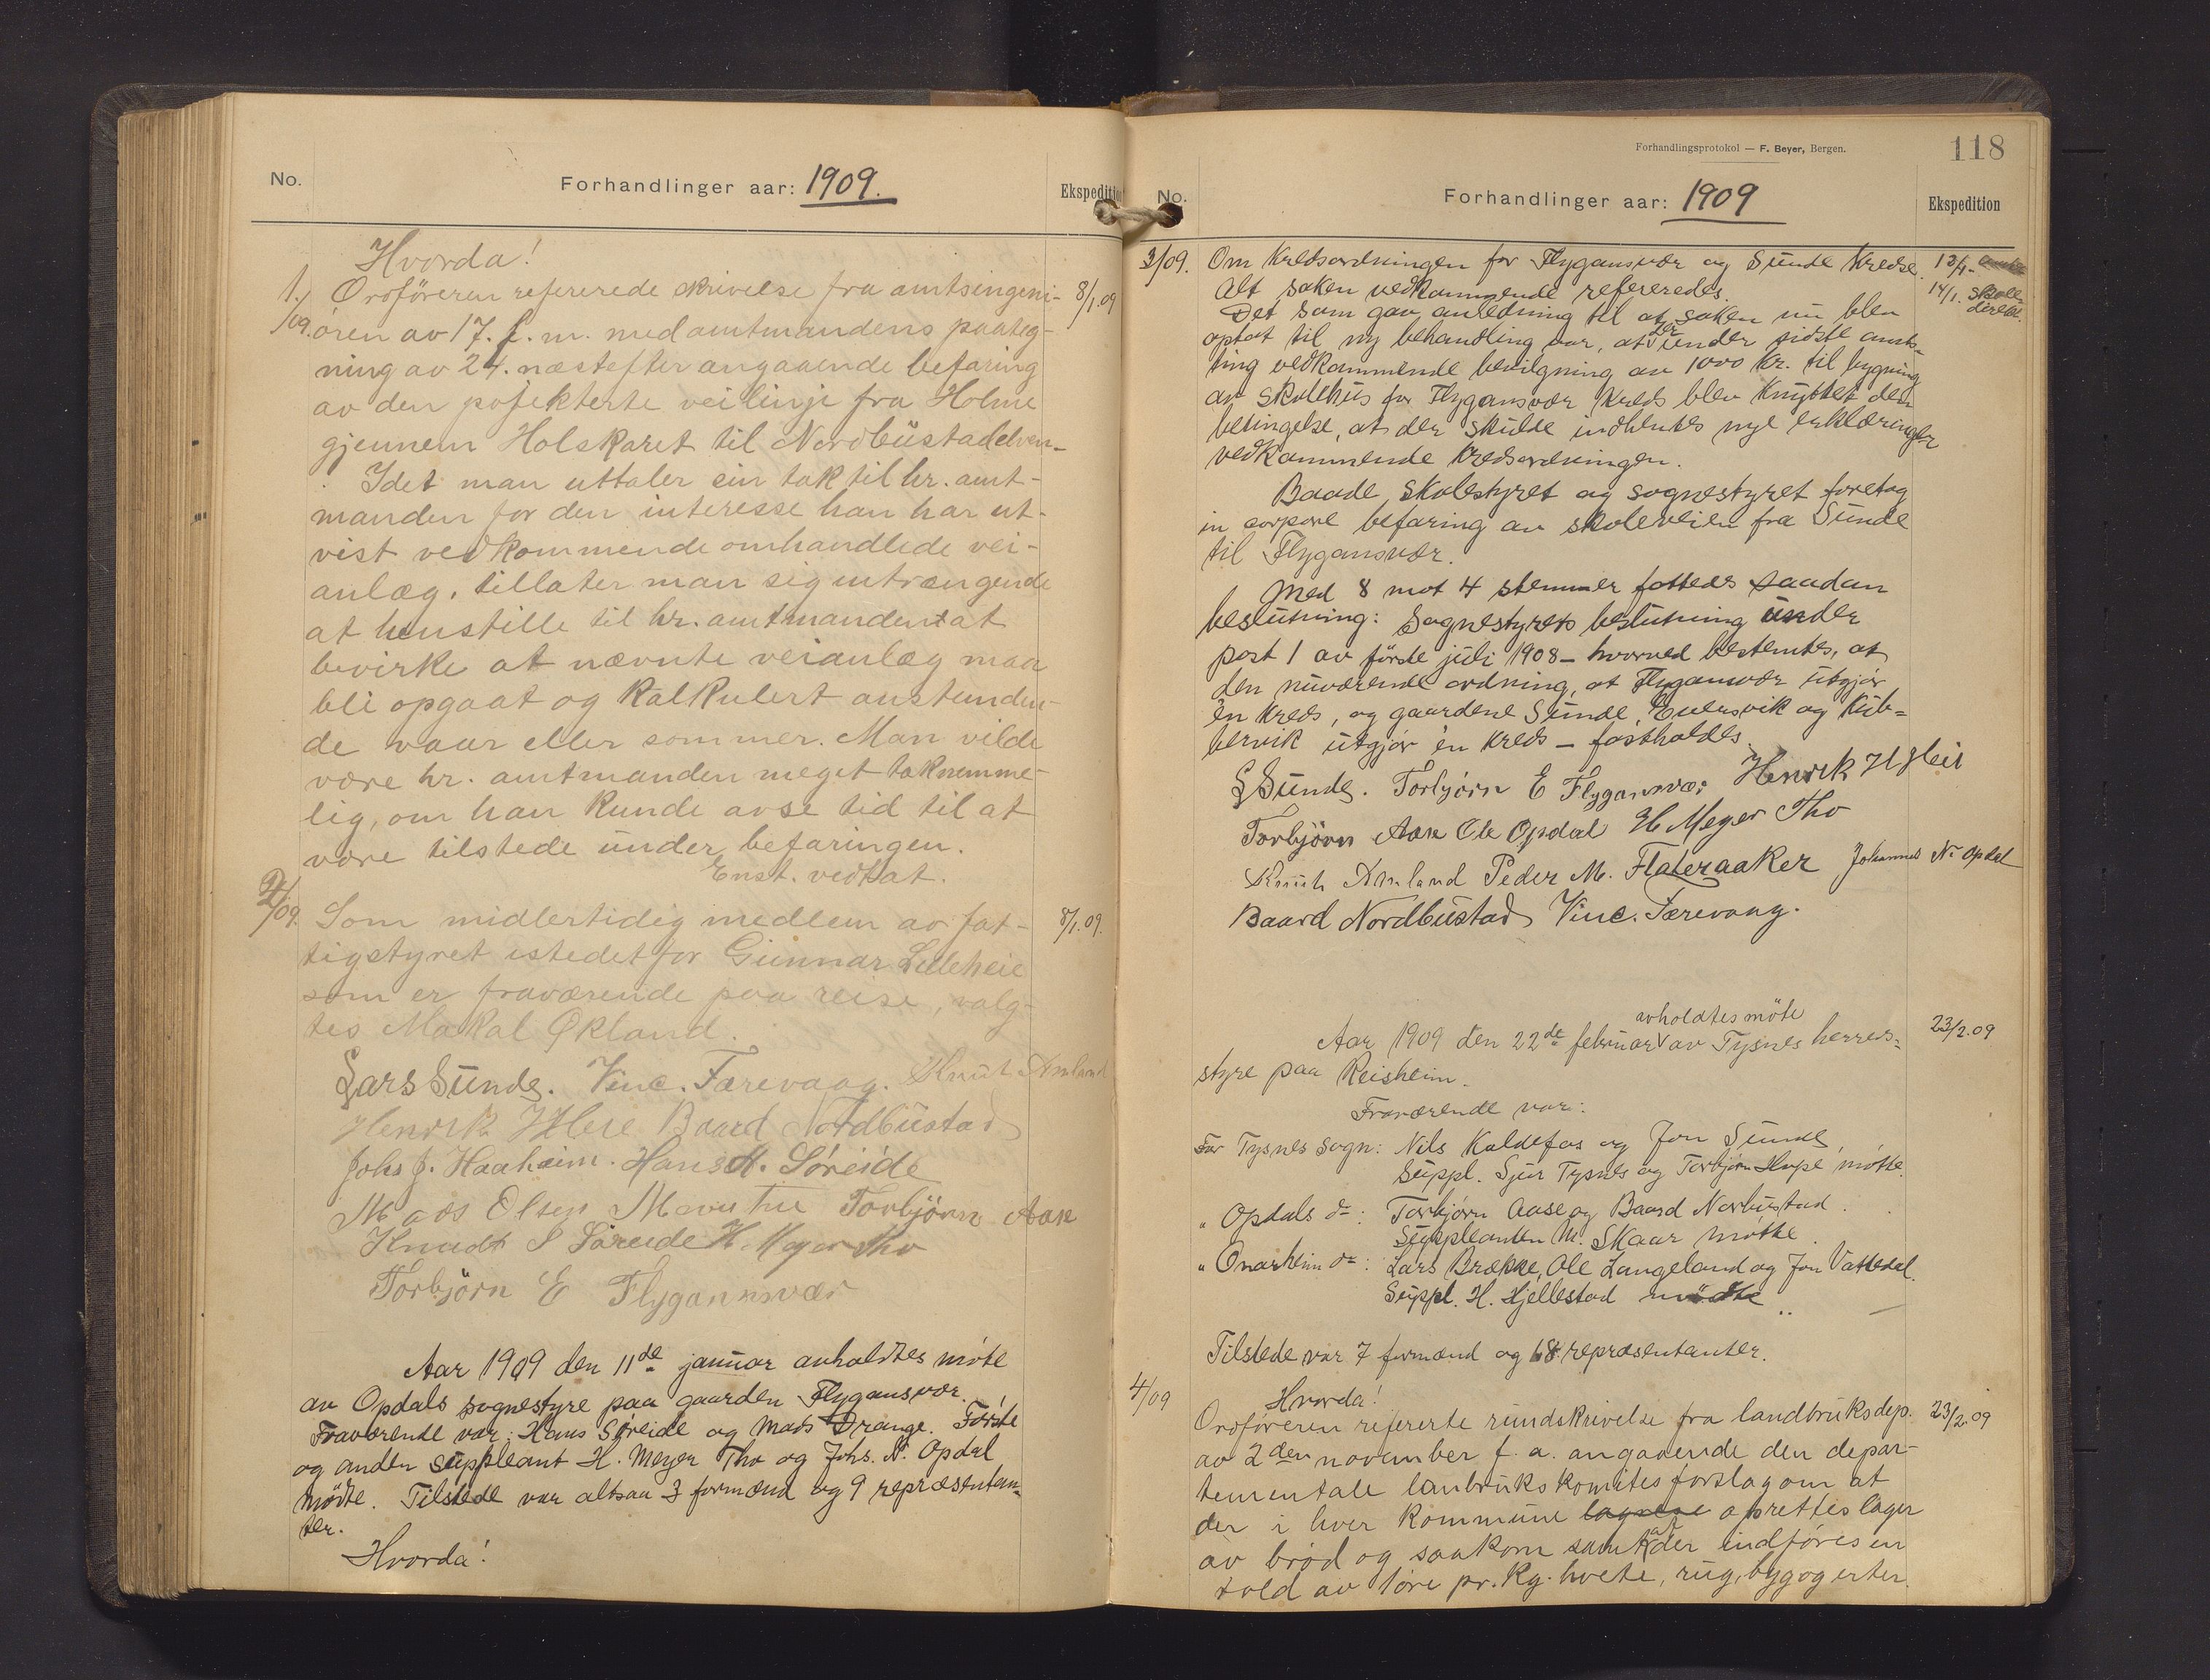 No. Forhandlinger aar: 1909. Ekspedition
Hvorda!
1./09. Ordföreren refererede skrivelse fra amtsingeni- 8/1.09
ören av 17. f. m. med amtmandens paateg-
ning av 24. næstefter angaaende befaring
av den pojekterte veilinje fra Holme
gjennem Holskaret til Nordbüstadelven.
Idet man uttaler sin tak til hr. amt-
manden for den interesse han har ut-
vist vedkommende omhandlede vei-
anlæg, tillater man sig intrængende
at henstille til hr. amtmanden at
bevirke at nævnte veianlæg maa
bli opgaat og kalkulert anstunden-
de vaar eller sommer. Man vilde
være hr. amtmanden meget taknemme-
lig, om han kunde avse tid til at
være tilstede ünder befaringen.
Enst. vedtat.
2/09. Som midlertidig medlem av fat- 8/1.09.
tigstyret istedetfor Günnar Lilleheie
som er fraværende paa reise, valg-
tes Makal Økland.
Lars Sünde. Vinc. Færevaag. Knut Amland
Henrik H Heie Baard Nordbüstad
Johs J. Haaheim. Hans H. Söreide
Mads Olsen Torbjörn Aase
Knudt S Söreide H. Meyer Tho
Torbjörn E Flygansvær
Aar 1909 den 11de janüar avholdtes möte
av Opdals sognestyre paa gaarden Flygansvær.
Fraværende var: Hans Söreide og Mads Drange. Förste
og anden süppleant H. Meyer Tho og Johs. N. Opdal
mödte. Tilstede var altsaa 3 formænd og 9 repræsentan=
ter.
Hvorda!
Forhandlingsprotokol — F. Beyer, Bergen. 118
No. Forhandlinger aar: 1909 Ekspedition
3/09. Om Kredsordningen for Flygansvær og Sünde Kredse. 13/1-
Alt saken vedkommende refereredes. 14/1. skole
Det som gav anledning til at saken nü blev direkt.
optat til ny behandling var, at der ünder sidste amts-
ting vedkommende bevilgning av 1000 kr. til bygning
av skolehüs for Flygansvær Kreds blev knyttet den
betingelse, at der skülde indhentes nye erklæringer
vedkommende Kredsordningen.
Baade skolestyret og sognestyret foretog
in corpore befaring av skoleveien fra Sünde
til Flygansvær.
Med 8 mot 4 stemmer fattedes saadan
beslütning: Sognestyrets beslütning ünder
post 1 av förste jüli 1908 – hvorved bestemtes, at
den nüværende ordning, at Flygansvær ütgjör
én Kreds, og gaardene Sünde, Evensvik og Küb=
bervik ütgjör én Kreds – fastholdes.
L Sünde. Torbjörn E Flygansvær Henrik H Heie
Torbjörn Aase Ole Opdal H Meyer Tho
Knüt Amland Peder M. Flateraaker Johannes N. Opdal
Baard Nordbüstad Vinc. Færevaag.
avholdtes möte
Aar 1909 den 22de febrüar av Tysnes herreds= 23/2.09
styre paa Reisheim.
Fraværende var:
For Tysnes sogn: Nils Kaldefos og Jon Sünde,
Süppl. Sjur Tysnes og Torbjörn Hope mötte.
„ Opdals do: Torbjörn Aase og Baard Norbüstad.
Süppleanten M. Skaar mötte.
„ Onarheim do: Lars Brække, Ole Langeland og Jon Vattedal.
Süppl. H. Hjellestad mödte.
Tilstede var 7 formænd og 18 repræsentanter.
Hvorda!
4/09 Ordföreren refererte ründskrivelse fra landbrüksdep. 23/2.09
av 2den november f. a. angaaende den depar-
tementale lanbrükskomites forslag om at
der i hver kommüne lagrese oprettes lager
av bröd og saakorn samt at der indföres en
told av 1öre pr. kg. hvete, rüg, byg og erter.